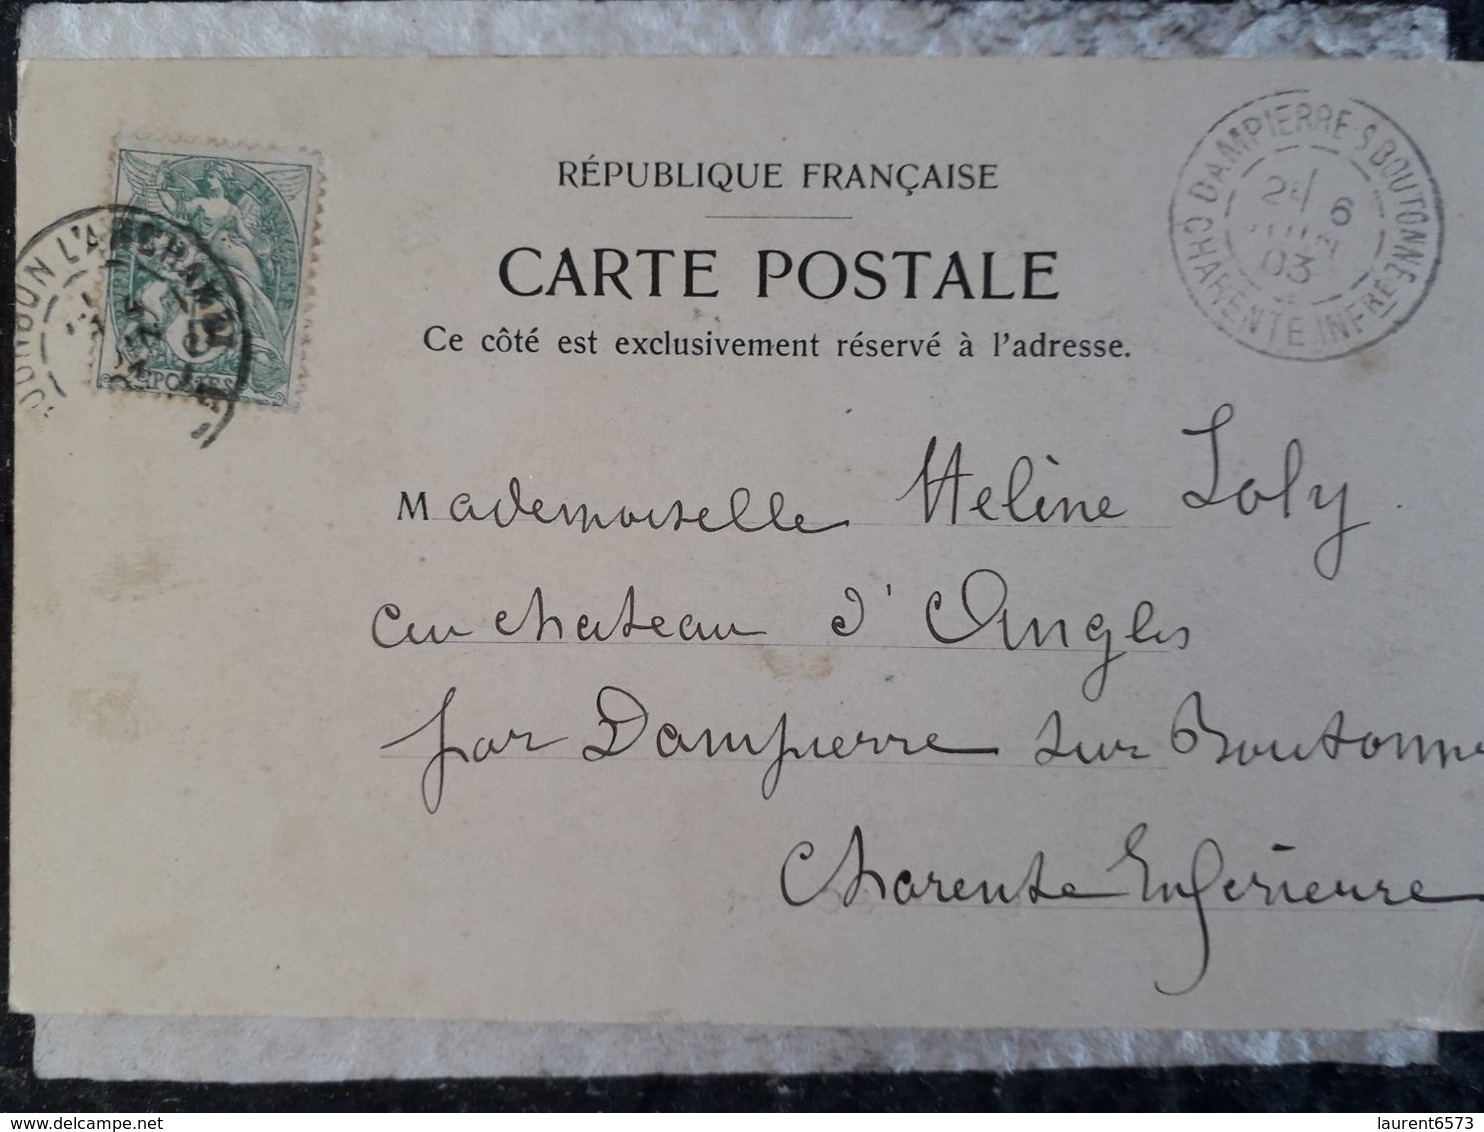 RÉPUBLIQUE FRANÇAISE
CARTE POSTALE
Ce côté est exclusivement réservé à l'adresse.
DAMPIERRE-S-BOUTONNE
6
JUIN
03
CHARENTE INFRE
POSTES
Mademoiselle Helène Joly
au chateau d'Angles
par Dampierre sur Boutonne
Charente Inferieure
laurent6573